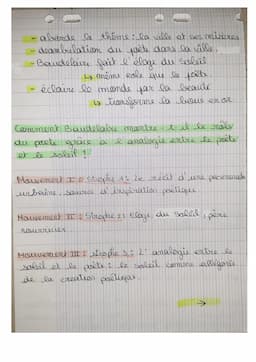 - aborde le thème : la ville et ses misères
- déambulation du poète dans la ville.
- Baudelaire fait l'éloge du soleil
↳ même rôle que le poète
- éclaire le monde par la beauté
↳ transforme la boue en or
Comment Baudelaire montre t-il le rôle
du poète grâce à l'analogie entre le poète
et le soleil ?
Mouvement I : Strophe 1 : Le récit d'une promenade
urbaine, source d'inspiration poétique.
Mouvement II : Strophe 2 : Éloge du soleil, père
nourricier.
Mouvement III : strophe 3 : L'analogie entre le
soleil et le poète : le soleil comme allégorie
de la création poétique.
→